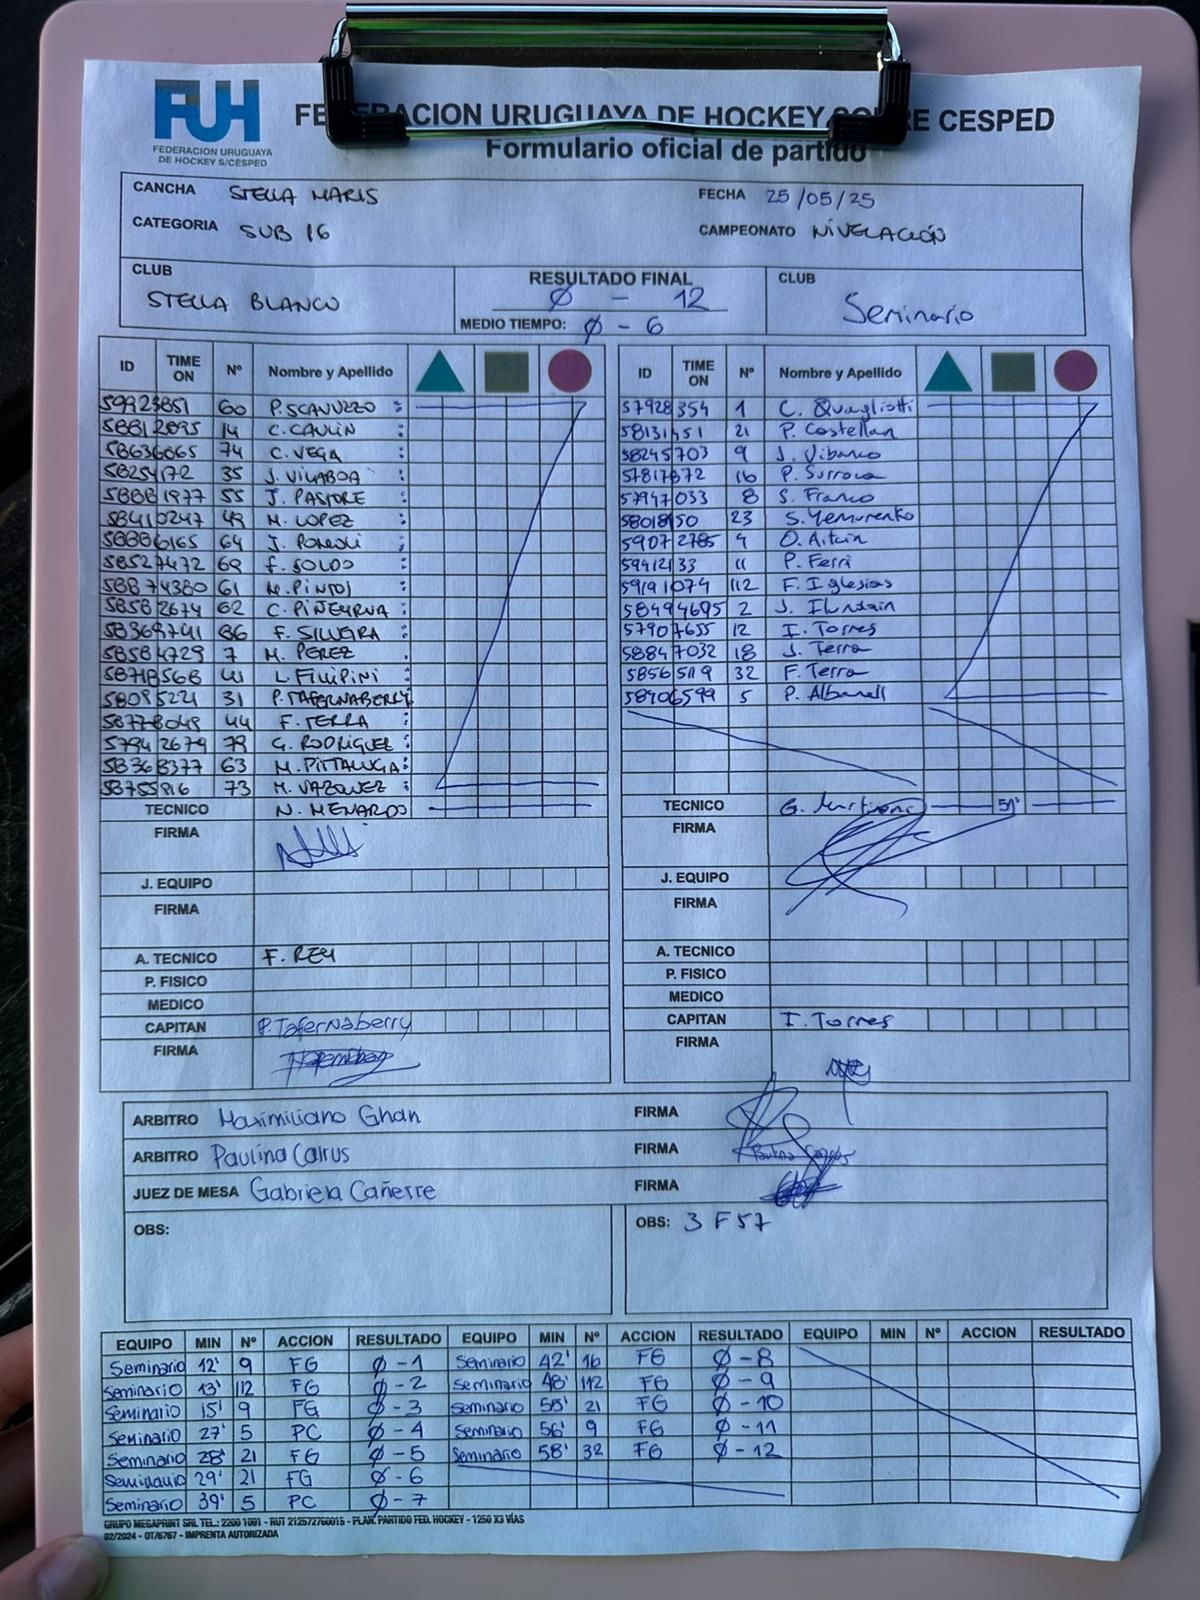 FUH
FEDERACION URUGUAYA
DE HOCKEY S/CESPED
FEDERACION URUGUAYA DE HOCKEY SOBRE CESPED
Formulario oficial de partido
CANCHA STELLA MARIS FECHA 25/05/25
CATEGORIA SUB 16 CAMPEONATO NIVELACIÓN
CLUB STELLA BLANCO RESULTADO FINAL Ø - 12 CLUB Seminario
MEDIO TIEMPO: Ø - 6
ID TIME ON Nº Nombre y Apellido ID TIME ON Nº Nombre y Apellido
59923851 60 P. SCAVUZZO 57928354 1 C. Quagliotti
58812895 14 C. CAULIN 58131451 21 P. Costellan
58636065 74 C. VEGA 58245703 9 J. Vibanco
58254172 35 J. VILABOA 57817872 16 P. Surroca
58881977 55 J. PASTORE 57947033 8 S. Franco
58410247 49 M. LOPEZ 58018150 23 S. Yemurenko
58886165 64 J. 59072785 4 O. Aitcin
58527472 69 F. SOLDO 59412133 11 P. Ferri
58874380 61 M. PINTOJ 59191074 112 F. Iglesias
58582674 62 C. PIÑEYRUA 58494695 2 J. Ilundain
58369741 86 F. SILVEIRA 57907655 12 I. Torres
58584729 7 M. PEREZ 58847032 18 J. Terra
58718568 41 L. FILIPINI 58565119 32 F. Terra
58095221 31 P. TAFERNABERRY 58406599 5 P. Albanell
58778049 44 F. TERRA
57942679 79 G. RODRIGUEZ
58368377 63 M. PITTALUGA
58755816 73 M. VAZQUEZ
TECNICO N. MENARDO TECNICO G. 51'
FIRMA FIRMA
J. EQUIPO J. EQUIPO
FIRMA FIRMA
A. TECNICO F. REY A. TECNICO
P. FISICO P. FISICO
MEDICO MEDICO
CAPITAN P. Tafernaberry CAPITAN I. Torres
FIRMA FIRMA
ARBITRO Maximiliano Ghan FIRMA
ARBITRO Paulina Cairus FIRMA
JUEZ DE MESA Gabriela Cañerre FIRMA
OBS: OBS: 3 F 57
EQUIPO MIN Nº ACCION RESULTADO EQUIPO MIN Nº ACCION RESULTADO EQUIPO MIN Nº ACCION RESULTADO
Seminario 12' 9 FG Ø-1 Seminario 42' 16 FG Ø-8
Seminario 13' 112 FG Ø-2 Seminario 48' 112 FG Ø-9
Seminario 15' 9 FG Ø-3 Seminario 55' 21 FG Ø-10
Seminario 27' 5 PC Ø-4 Seminario 56' 9 FG Ø-11
Seminario 28' 21 FG Ø-5 Seminario 58' 32 FG Ø-12
Seminario 29' 21 FG Ø-6
Seminario 39' 5 PC Ø-7
GRUPO MEGAPRINT SRL TEL.: 2200 1091 - RUT 212572760015 - PLAN. PARTIDO FED. HOCKEY - 1250 X3 VÍAS
02/2024 - OT/6767 - IMPRENTA AUTORIZADA